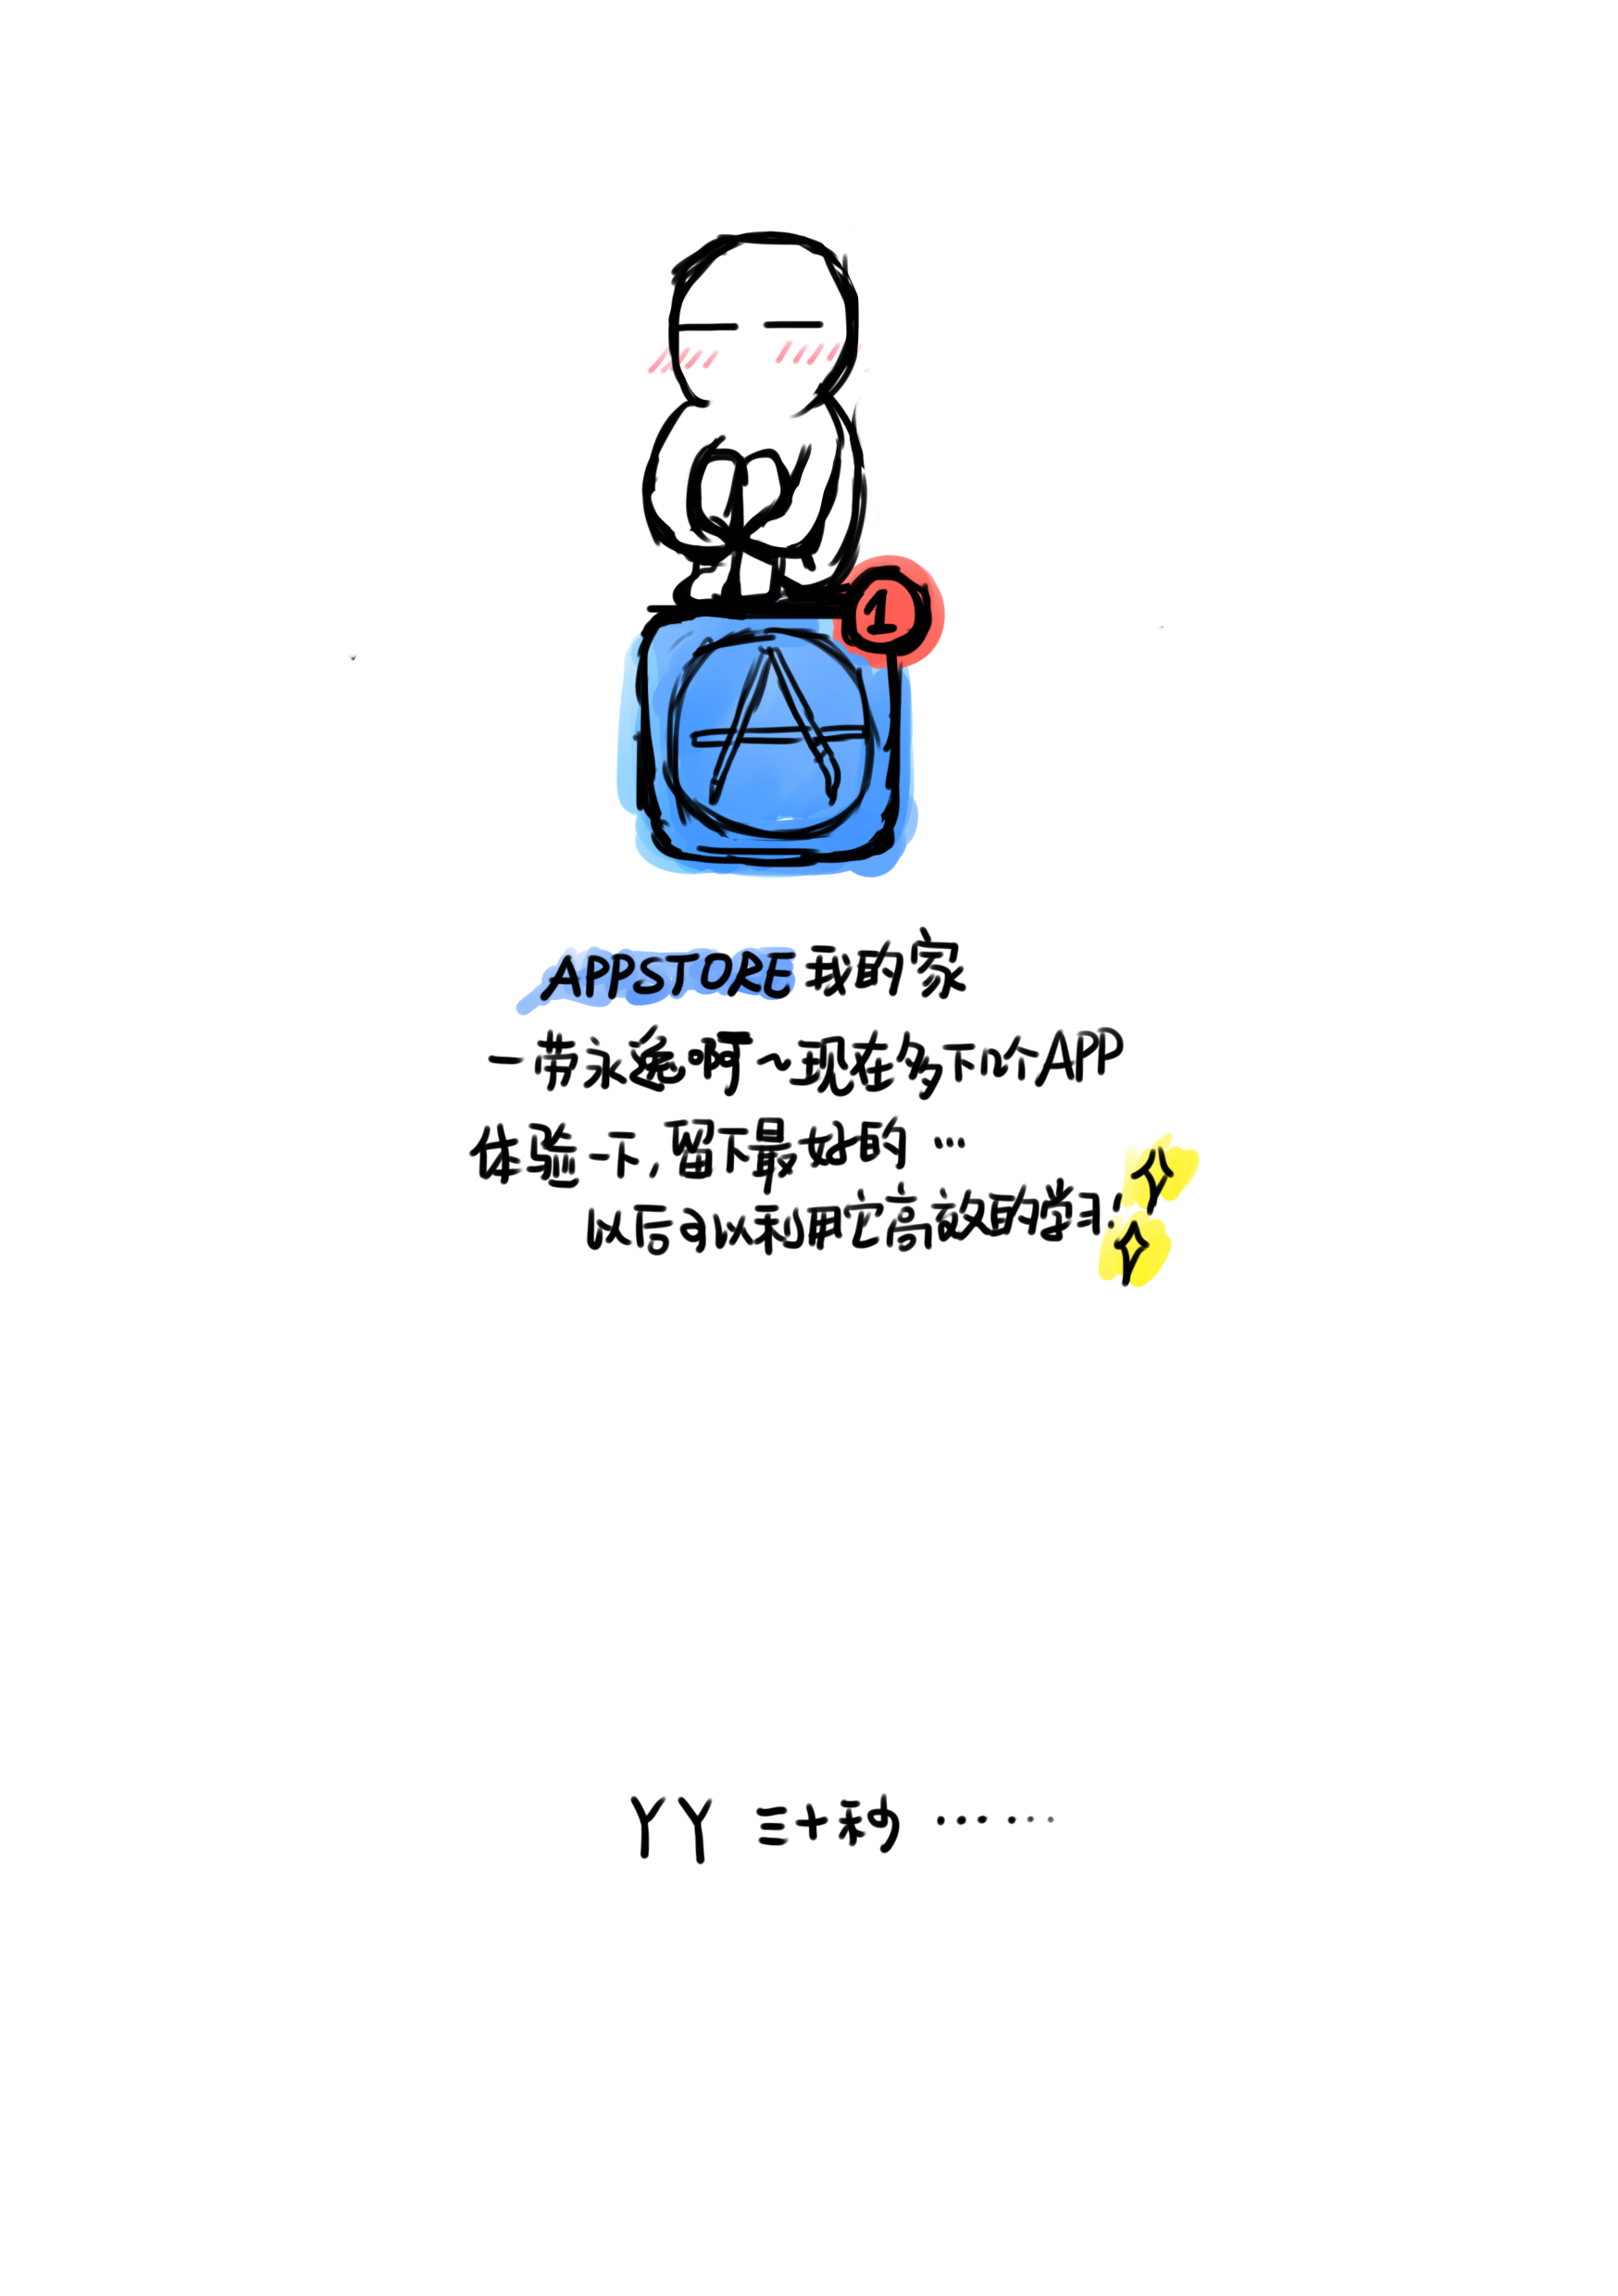 1
A
APPSTORE 我的家
一带永逸啊~现在多下几个APP
体验一下,留下最好的…
以后可以利用它高效的学习!
YY 三十秒……